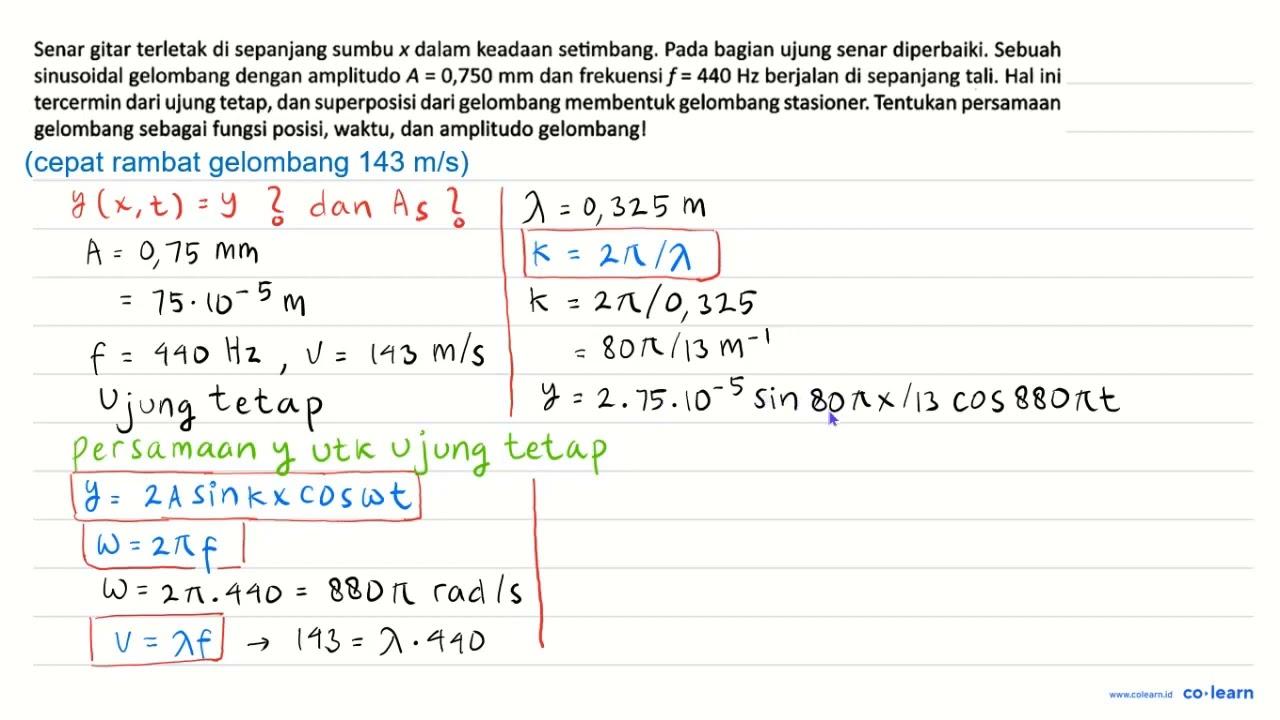 Senar gitar terletak di sepanjang sumbu x dalam keadaan setimbang. Pada bagian ujung senar diperbaiki. Sebuah
sinusoidal gelombang dengan amplitudo A = 0,750 mm dan frekuensi f = 440 Hz berjalan di sepanjang tali. Hal ini
tercermin dari ujung tetap, dan superposisi dari gelombang membentuk gelombang stasioner. Tentukan persamaan
gelombang sebagai fungsi posisi, waktu, dan amplitudo gelombang!
(cepat rambat gelombang 143 m/s)
y (x, t) = y ? dan As ?
A = 0,75 mm
= 75 · 10⁻⁵ m
f = 440 Hz, v = 143 m/s
Ujung tetap
Persamaan y utk ujung tetap
y = 2A sin kx cos ωt
ω = 2πf
ω = 2π . 440 = 880π rad/s
v = λf → 143 = λ · 440
λ = 0,325 m
k = 2π/λ
k = 2π/0,325
= 80π/13 m⁻¹
y = 2 . 75 . 10⁻⁵ sin 80πx/13 cos 880πt
www.colearn.id co·learn